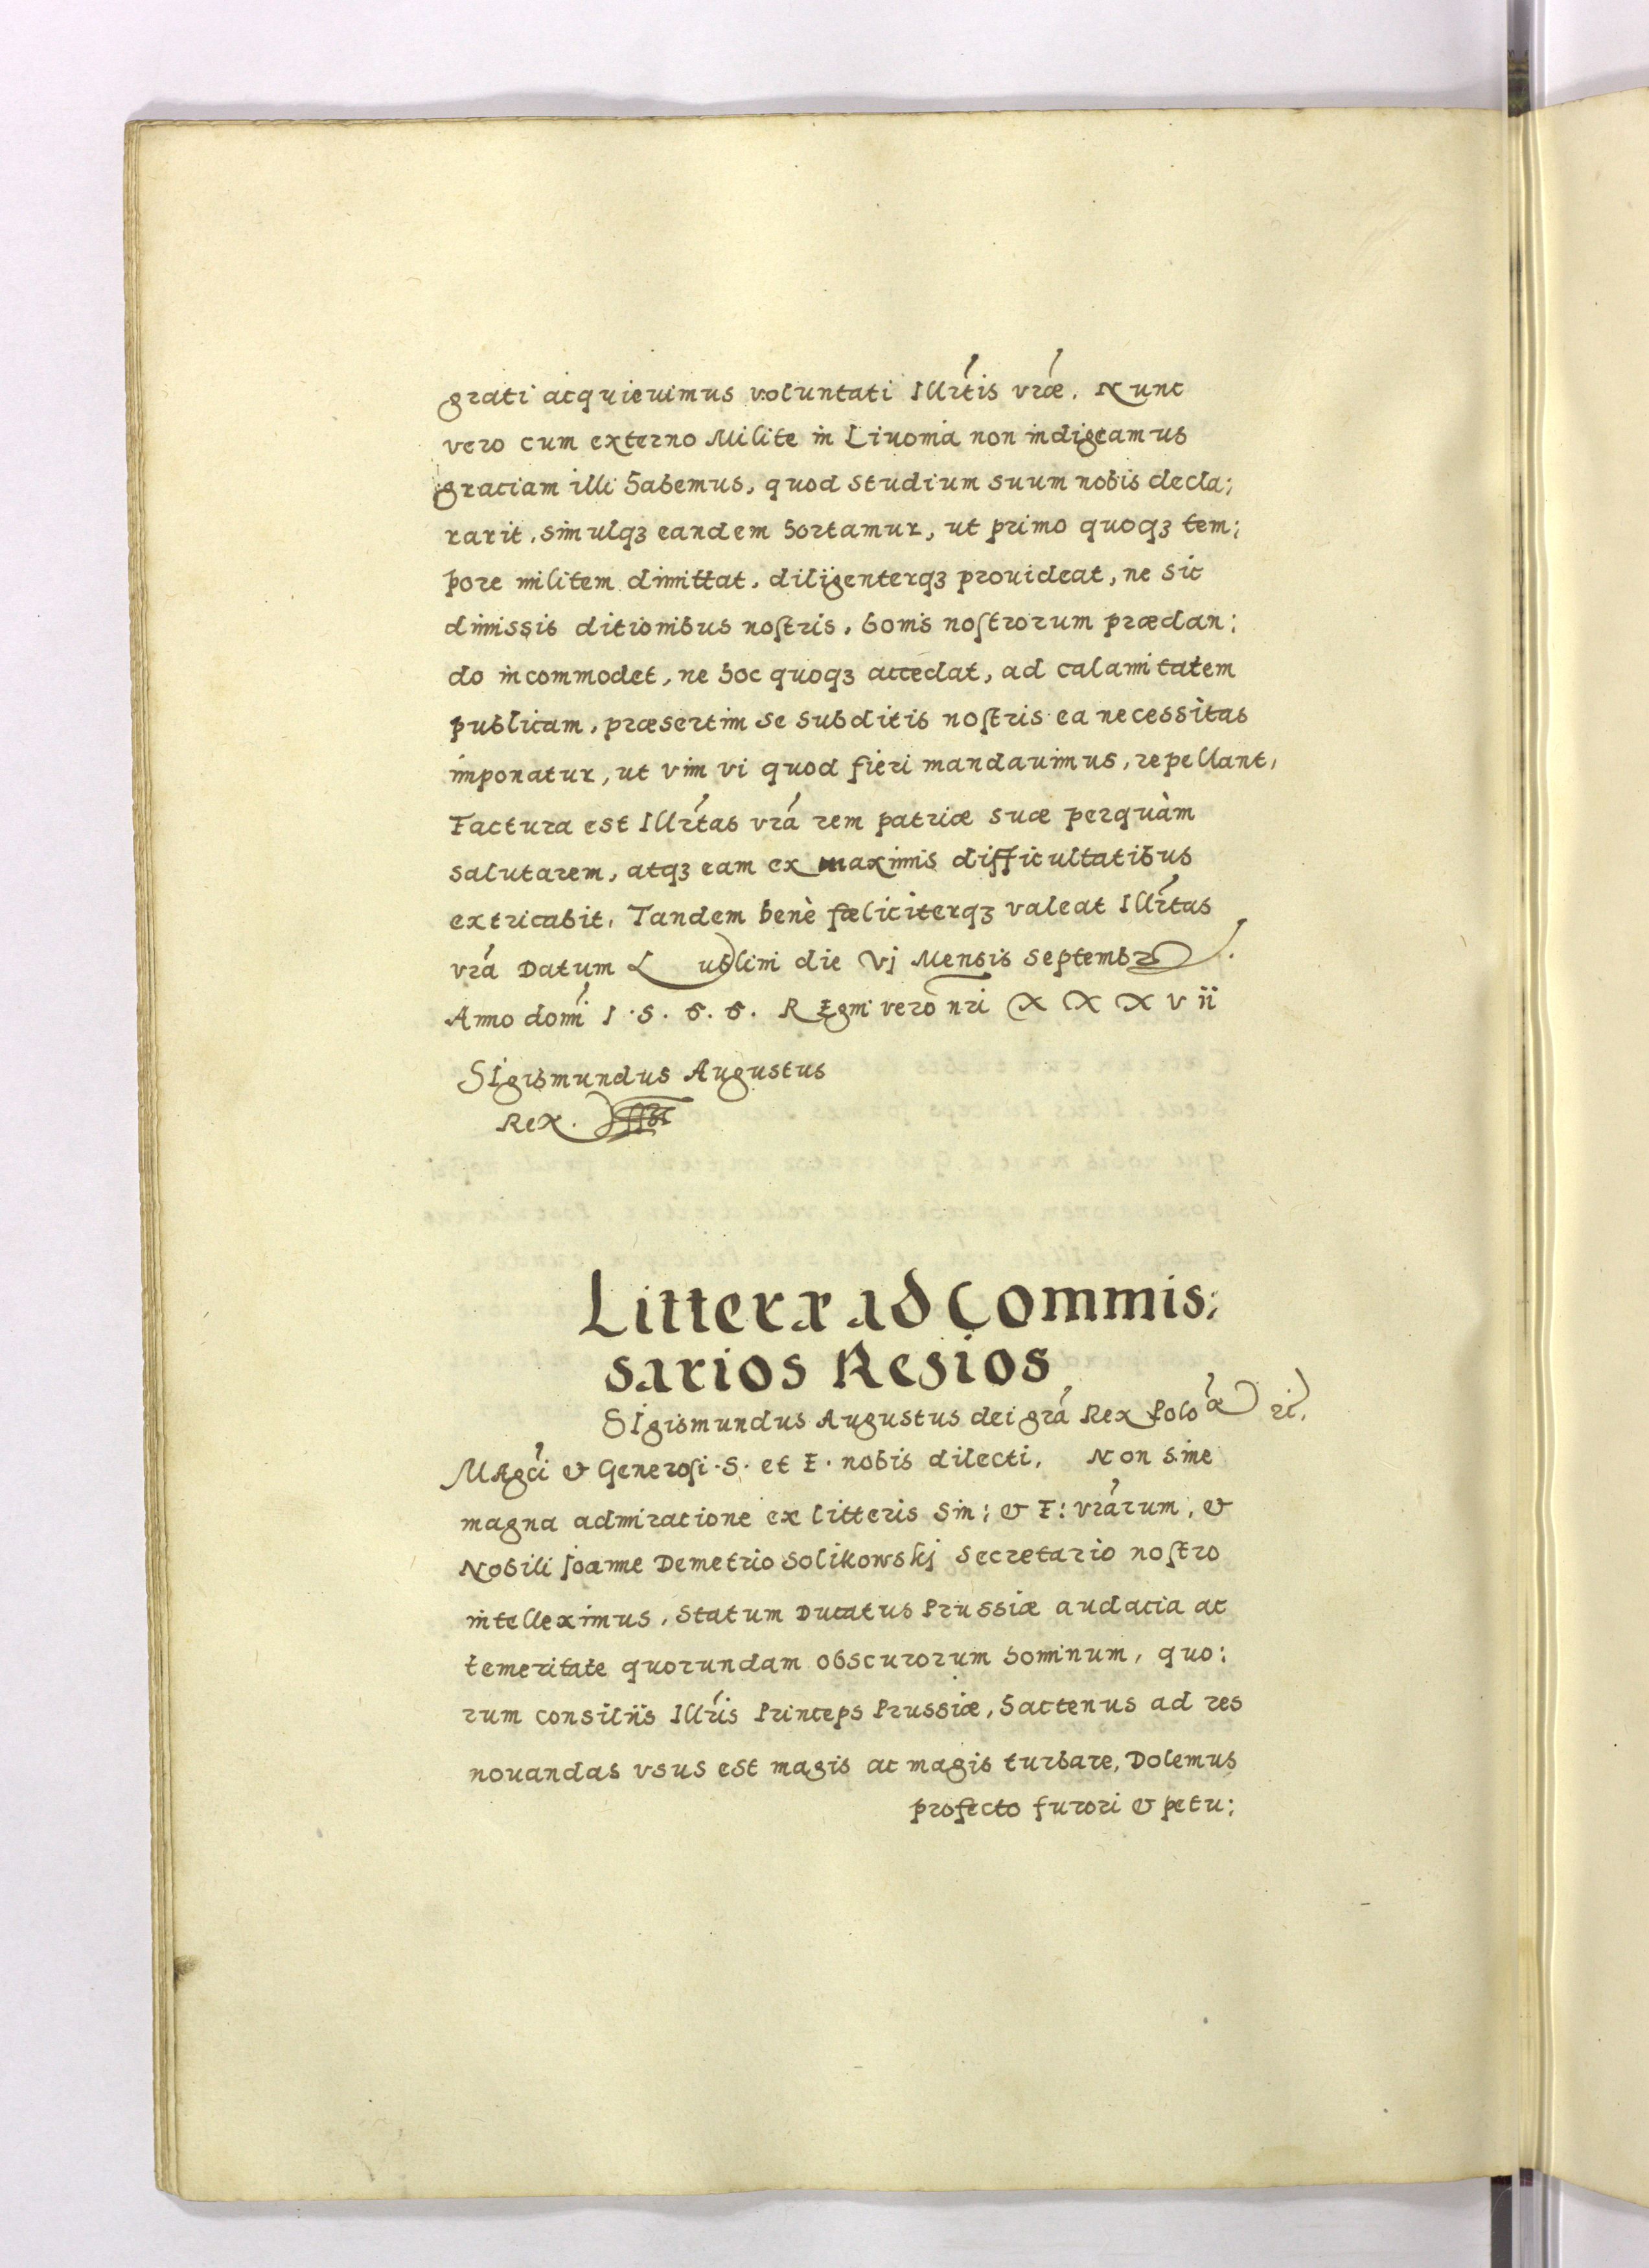 grati acquieuimus voluntati Illr̃tis vr̃æ. Nunc
vero cum externo Milite in Liuonia non indigeamus
graciam illi habemus, quod studium suum nobis decla;
rarit, simulqꝫ eandem hortamur, ut primo quoqꝫ tem;
pore militem dimittat, diligenterqꝫ prouideat, ne sic
dimissis ditionibus noſtris, bonis noſtrorum prædan;
do incommodet, ne hoc quoqꝫ accedat, ad calamitatem
publicam, præsertim se subditis noſtris ea necessitas
imponatur, ut vim vi quod fieri mandauimus, repellant,
Factura est Illr̃tas vrã rem patriæ suæ perquàm
salutarem, atqꝫ eam ex maximis difficultatibus
extricabit. Tandem benè fœliciterqꝫ valeat Illr̃tas
vrã Datum Lublini die Vj Mensis Septembr.
Anno domĩ 1.5.6.6. REgni vero nr̃i XXXVii
SIgismundus Augustus
Rex.
Litteræ ad Commis;
sarios Regios
SIgismundus Augustus dei grã Rex Poloæ ri.
MAgcĩ & Generoſi .S. et F. nobis dilecti. Non sine
magna admiratione ex litteris Sin: & F: vrãrum, &
Nobili Joanne Demetrio Solikowskj Secretario noſtro
intelleximus, Statum Ducatus Prussiæ audacia ac
temeritate quorundam obscurorum hominum, quo:
rum consilijs Illr̃is Princeps Prussiæ, hactenus ad res
nouandas vsus est magis ac magis turbare, Dolemus
profecto furori & petu;